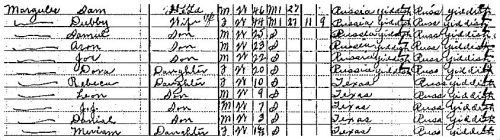 Margules Sam M W 46 M1 27 Russia Yiddish Russ Yiddish
Dubby Wife F W 44 M1 27 11 9 Russia Yiddish Russ Yiddish
Samuel Son M W 25 S Russia Yiddish Russ Yiddish
Aron Son M W 23 S Russia Yiddish Russ Yiddish
Joe Son M W 22 S Russia Yiddish Russ Yiddish
Dora Daughter F W 20 S Russia Yiddish Russ Yiddish
Rebecca Daughter F W 10 S Texas Russ Yiddish
Leon Son M W 9 S Texas Russ Yiddish
Son M W 7 S Texas Russ Yiddish
Daniel Son M W 3 S Texas Russ Yiddish
Miriam Daughter F W S Texas Russ Yiddish